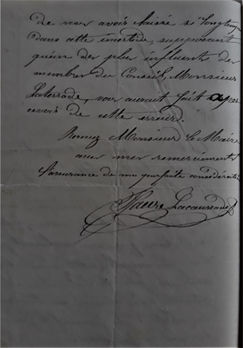 de vous avoir laissé si longtemps
dans cette incertitude, supposant
qu'un des plus influents des
membres du Conseil, Monsieur
vous aurait fait
de cette erreur.
Recevez Monsieur le Maire
avec mes remerciements
l'assurance de ma parfaite considération